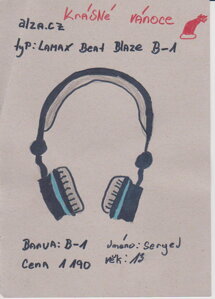 KRÁSNÉ VÁNOCE
alza.cz
typ: LAMAX Beat Blaze B-1
BARVA: B-1
Jméno: sergej
Cena 1 190
věk: 13